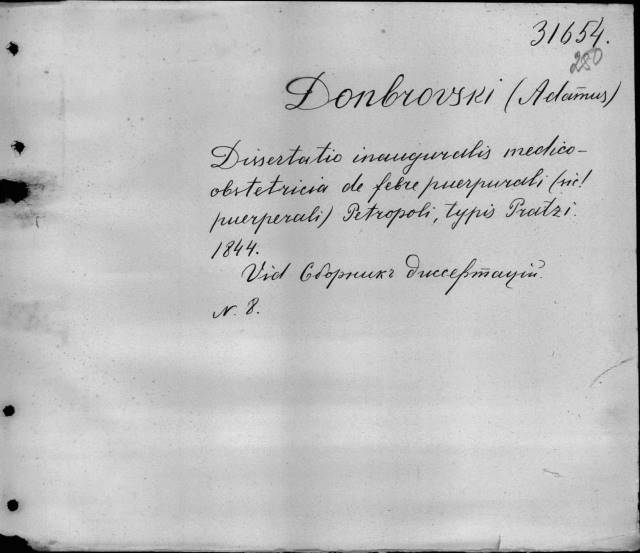 31654.
250
Donbrovski (Adamus)
Dissertatio inauguralis medico-
obstetricia de febre puerpurali (sic!
puerperali) Petropoli, typis Pratzi.
1844.
Vid Сборникъ диссертацій.
N. 8.